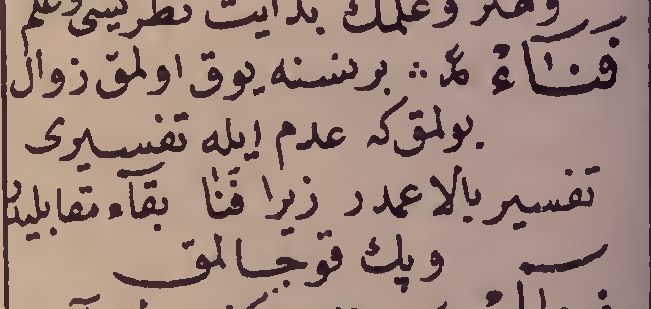 وعلمك بدايت نظريسى وعلم
فَنَآءْ ﻋﻢ ∴ برنسنه يوق اولمق زوال
بولمق كه عدم ايله تفسيرى
تفسير بالاعمدر زيرا فَنَا بقآء مقابليدر
وپك قوجالمق